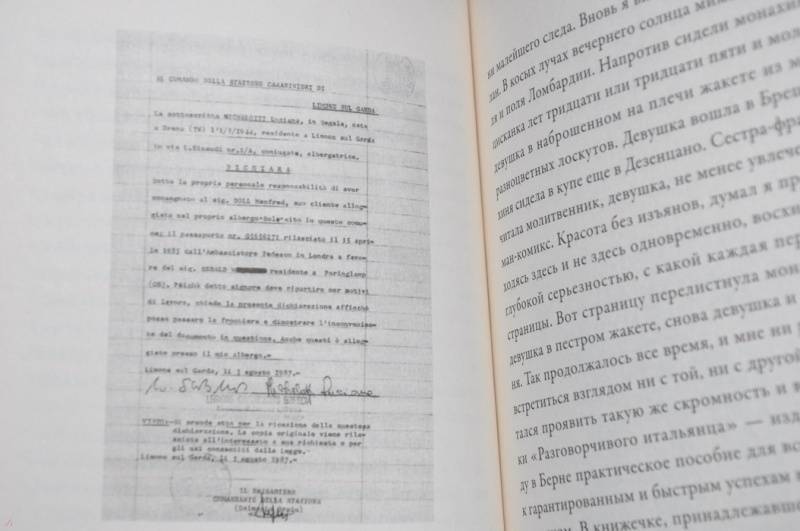 AL COMANDO DELLA STAZIONE CARABINIERI DI
LIMONE SUL GARDA
La sottoscritta MICHELOTTI Luciana, in Segala, nata
a Breno l'1/7/1944, residente a Limone sul Garda
in via L.Einaudi nr.1/A, coniugata, albergatrice.
DICHIARA
Sotto la propria personale responsabilità di aver
consegnato al sig. DOLL Manfred, suo cliente allog-
giato nel proprio albergo Sole sito in questo comu-
ne; il passaporto nr. rilasciato il 15 apri-
le dall'Ambasciatore Tedesco in Londra a favo-
re del sig. SEBALD residente a Poringland
(GB). Poichè detto signore deve ripartire per motivi
di lavoro, chiede la presente dichiarazione affinchè
possa passare la frontiera e dimostrare l'inconvenien-
te del documento in questione. Anche questi è allog-
giato presso il mio albergo.
Limone sul Garda, li agosto 1987.
VISTO:- Si prende atto per la ricezione della questesa
dichiarazione. La copia originale viene rila-
sciata all'interessato a sua richiesta e per
gli usi consentiti dalla legge.
Limone sul Garda, li agosto 1987.
IL BRIGADIERE
COMANDANTE DELLA STAZIONE
ни малейшего следа. Вновь я
лан. В косых лучах вечернего солнца
ля и поля Ломбардии. Напротив сидели монахин
цисканка лет тридцати или тридцати пяти и мол
девушка в наброшенном на плечи жакете из м
разноцветных лоскутов. Девушка вошла в Брец
хиня сидела в купе еще в Дезенцано. Сестра-фра
читала молитвенник, девушка, не менее увлече
ман-комикс. Красота без изъянов, думал я пр
ходясь здесь и не здесь одновременно, восхи
глубокой серьезностью, с какой каждая пер
страницы. Вот страницу перелистнула мон
девушка в пестром жакете, снова девушка и
ня. Так продолжалось все время, и мне ни
встретиться взглядом ни с той, ни с другой
тался проявить такую же скромность и в
ки «Разговорчивого итальянца» — изд
ду в Берне практическое пособие для вс
к гарантированным и быстрым успехам в
ном. В книжечке, принадлежавш